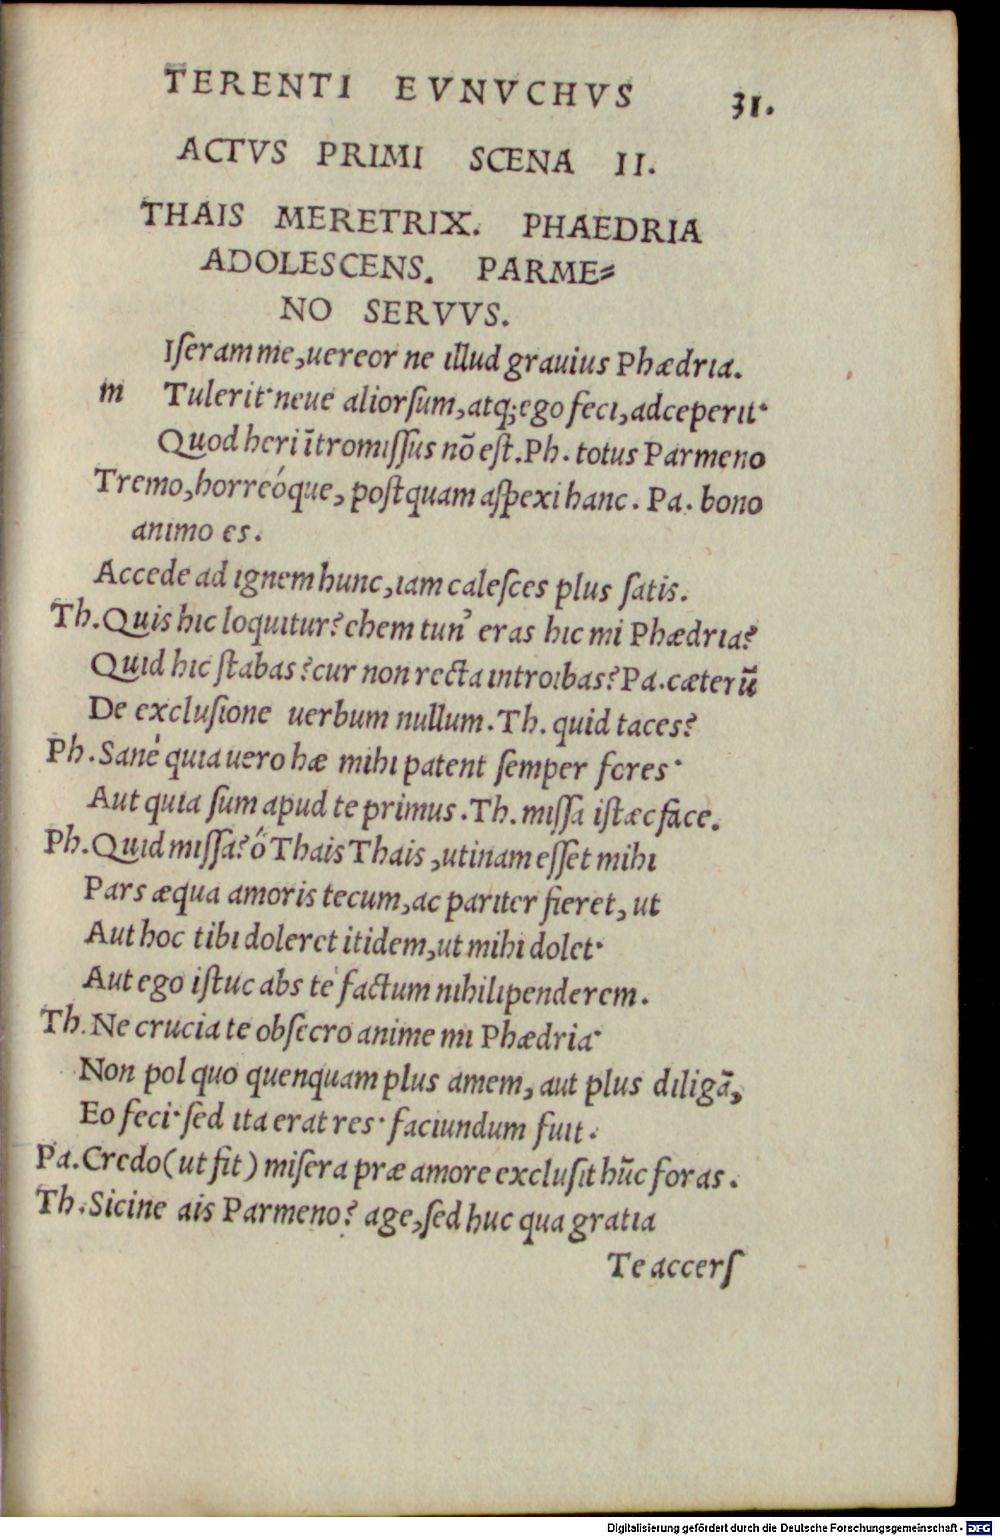 TERENTI EVNVCHVS 31.
ACTVS PRIMI SCENA II.
THAIS MERETRIX. PHAEDRIA
ADOLESCENS. PARME⸗
NO SERVVS.
Iſeram me, uereor ne illud grauius Phædria.
m Tulerit· neue aliorſum, atq; ego feci, adceperit·
Quod heri ītromiſſus nō eſt. Ph. totus Parmeno
Tremo, horreóque, poſtquam aſpexi hanc. Pa. bono
animo es.
Accede ad ignem hunc, iam caleſces plus ſatis.
Th. Quis hic loquitur? ehem tun’ eras hic mi Phædria?
Quid hic ſtabas? cur non recta introibas? Pa. cæterū
De excluſione uerbum nullum. Th. quid taces?
Ph. Sané quia uero hæ mihi patent ſemper fores·
Aut quia ſum apud te primus. Th. miſſa iſtæc face.
Ph. Quid miſſa? ó Thais Thais, utinam eſſet mihi
Pars æqua amoris tecum, ac pariter fieret, ut
Aut hoc tibi doleret itidem, ut mihi dolet·
Aut ego iſtuc abs te factum nihili penderem.
Th. Ne crucia te obſecro anime mi Phædria·
Non pol quo quenquam plus amem, aut plus diligā,
Eo feci· ſed ita erat res· faciundum fuit.
Pa. Credo (ut fit) miſera præ amore excluſit hūc foras.
Th. Sicine ais Parmeno? age, ſed huc qua gratia
Te accerſ
Digitalisierung gefördert durch die Deutsche Forschungsgemeinschaft - DFG